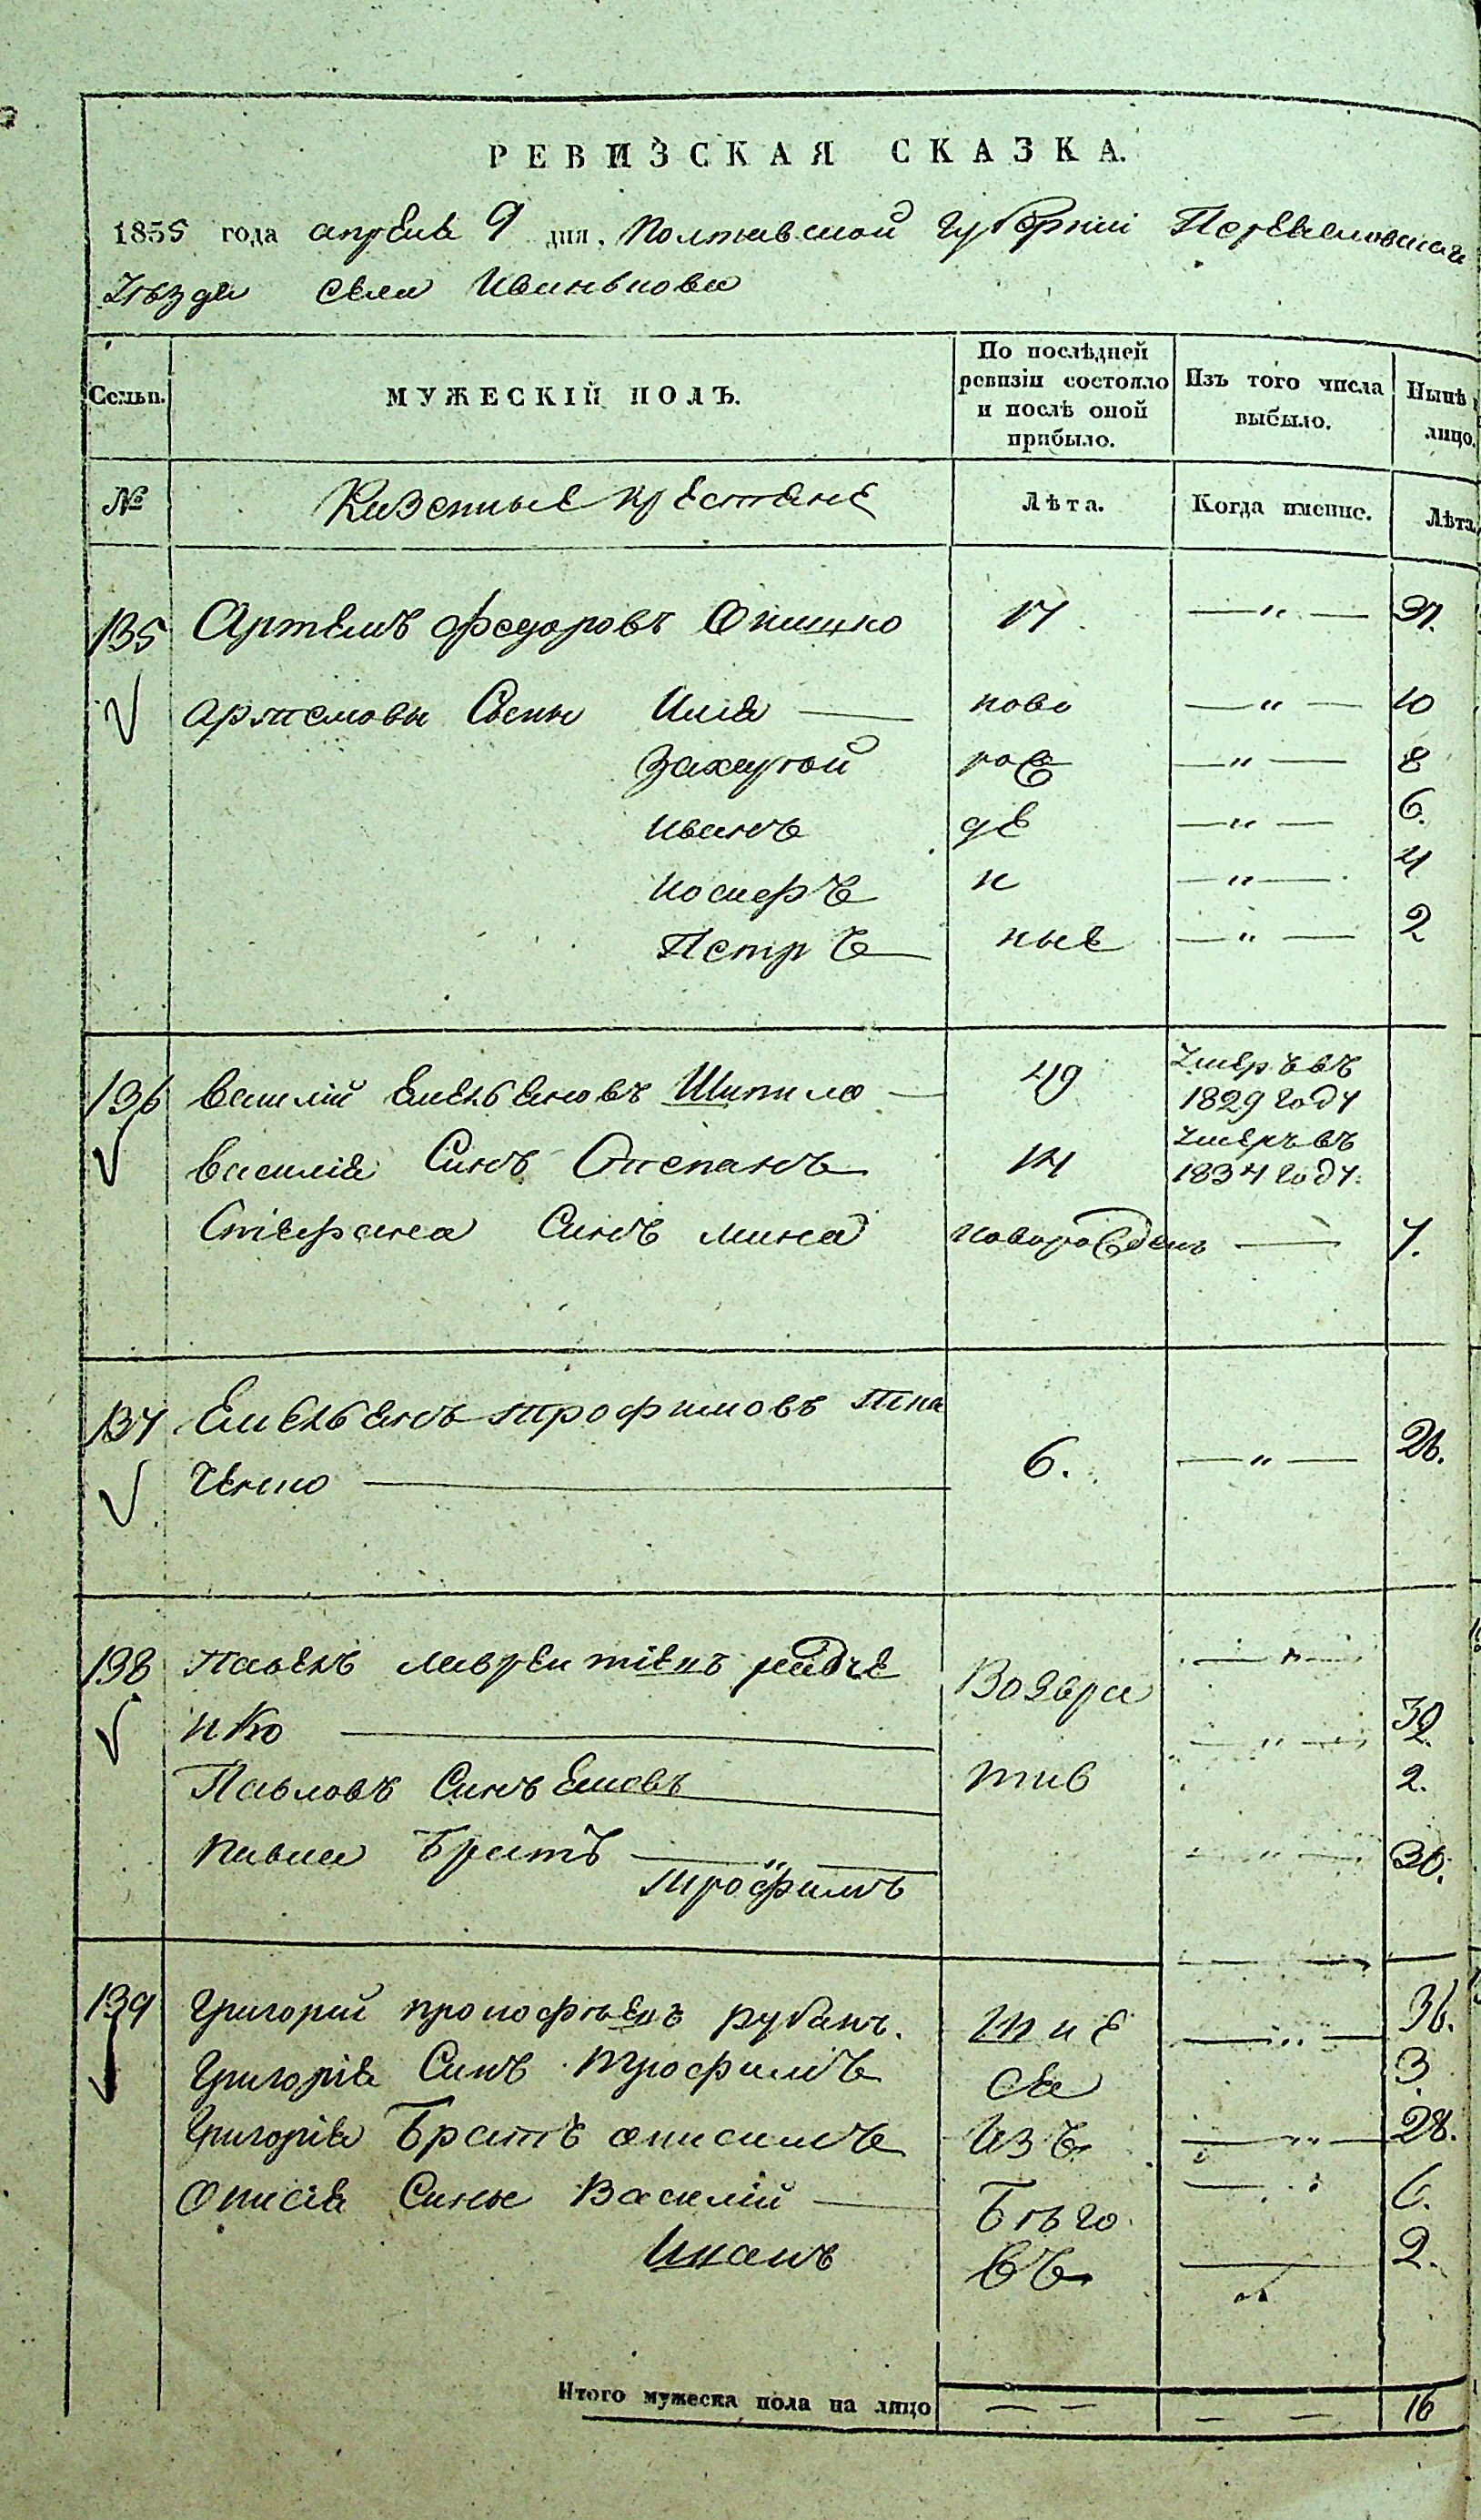 РЕВИЗСКАЯ СКАЗКА.
1835 года апреля 9 дня, Полтавской губернии
Уѣзда села Иванькова
Семьи. МУЖЕСКІЙ ПОЛЪ. По послѣдней ревизіи состояло и послѣ оной прибыло. Изъ того числа выбыло. Нынѣ лицо.
№ Казенные крестяне Лѣта. Когда именно. Лѣта.
135 Артемъ Федоровъ Онищко 17 — " — 37.
Артемовы Сыны Илія ново — " — 10
Захарій рож — " — 8
Иванъ де — " — 6.
Иосифъ н — " — 4
Петръ ные — " — 2
136 Василій Емельяновъ Шипило 49 Умеръ въ 1829 году
Василія Синъ Стспанъ 14 Умеръ въ 1834 году.
Стефана Синъ Мина новорожденъ — 7.
137 Емельянъ Трофимовъ Тка
ченко 6. — " — 26.
138 Павелъ Лаврентіевъ Радче Возвра — " —
нко — " — 32.
Павловъ Синъ тив 2.
Павла Братъ — " — — " — 30.
Трофимъ
139 Григорий Прокофьевъ Рубанъ. шие — " — 36.
Григорія Синъ Трофимъ ся 3
Григорія Братъ Онисимъ изъ — " — 28.
Онисія Сины Василій Бѣго 6.
Иванъ въ — " 2.
Итого мужеска пола на лицо — — — — 16